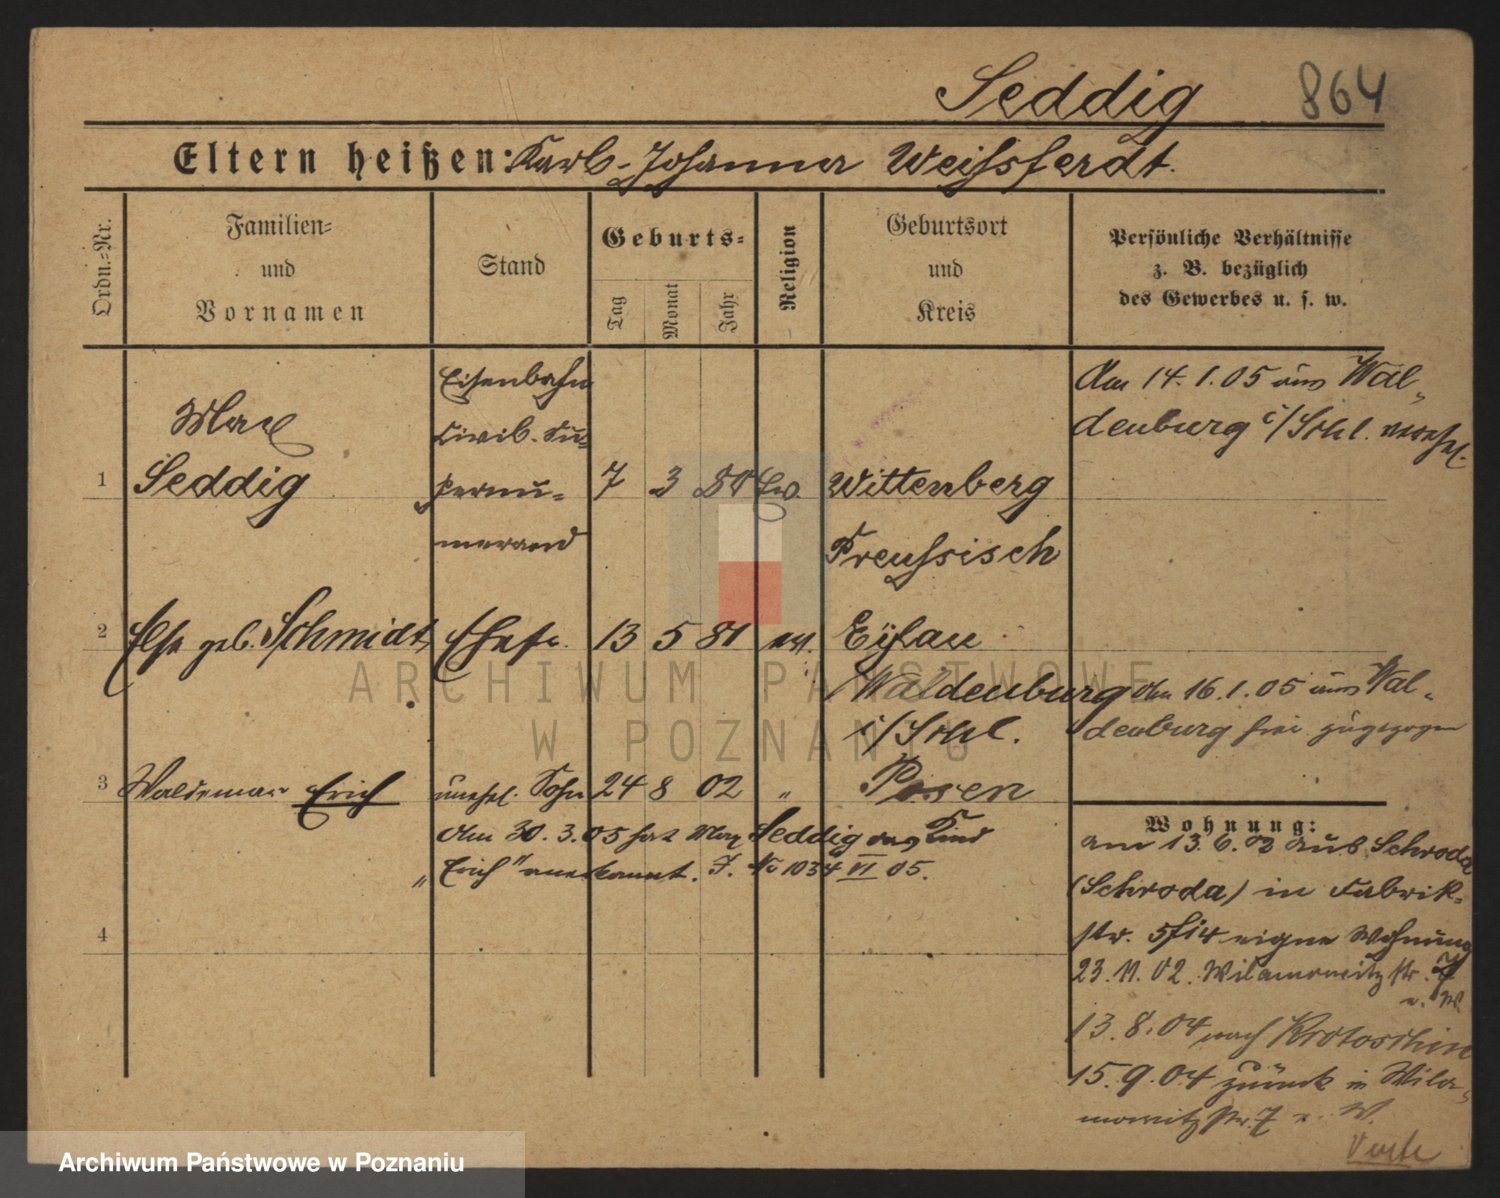 Seddig 864
Eltern heißen: Karl - Johanna Weissferdt.
Ordn.=Nr.
Familien=
und
Vornamen
Stand
Geburts=
Tag
Monat
Jahr
Religion
Geburtsort
und
Kreis
Persönliche Verhältnisse
z. B. bezüglich
des Gewerbes u. s. w.
1
Max
Seddig
Eisenbahn
Civil-Su=
pernu=
merar
7 3 80 Ev.
Wittenberg
Preussisch
Am 14.1.05 aus Wal=
denburg i/Schl. verehel.
2
Else geb. Schmidt
Ehefr.
13 5 81 ev.
Eylau
Waldenburg
i/Schl.
Am 16.1.05 aus Wal=
denburg hier zugezogen
3
Waldemar Erich
unehel. Sohn
24 8 02 "
Posen
Am 30.3.05 hat Max Seddig das Kind
"Erich" anerkannt. J. No 1034 VI 05.
4
Wohnung:
am 13.6.02 aus Schroda
(Schroda) in Fabrik=
str. eigne Wohnung
23.11.02. Wilamowitzstr. 7
13.8.04 nach Krotoschin
15.9.04 zurück in Wila=
mowitzstr 7 v. W.
Verte
ARCHIWUM PAŃSTWOWE
W POZNANIU
Archiwum Państwowe w Poznaniu